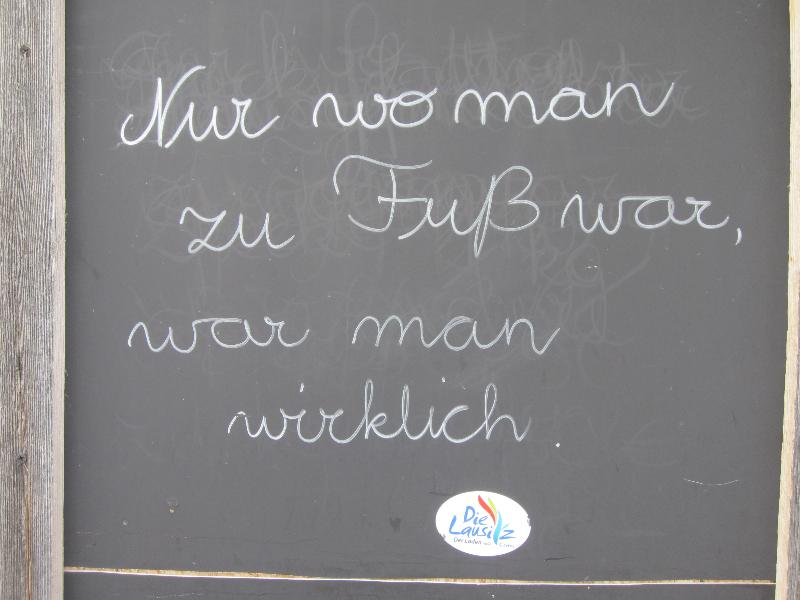 Nur wo man
zu Fuß war,
war man
wirklich.
Die
Lausitz
Der Laden